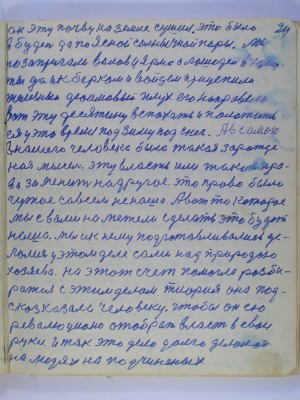 он эту почву на земле сушил. это было 24
и будет до поясной солнечной поры. мы
позапрягали волов и ярно з лошадей в
ты да и к беркам и войдем прицепили
десымовый плуг его направел
вот эту десятину вспахать и положить
ся у это время под зиму под снег. А в самого
знашего человека было такая зарожде
ная мысель. эту власть или такое пра
во заменить на другое. это право было
чужое савсем не наша. А вот то которое
мы с вами наметем сделать это будет
наша. мы и к нему подготовливались де
лалия у этом деле сами над природою
хозяева. на этот счет помогла разби
ратся с этим делам теория она под
сказказала человеку. чтобы он сю
революционо отобрат власт в свои
руки. и так это дело долго делалос
на людях на подчиненых